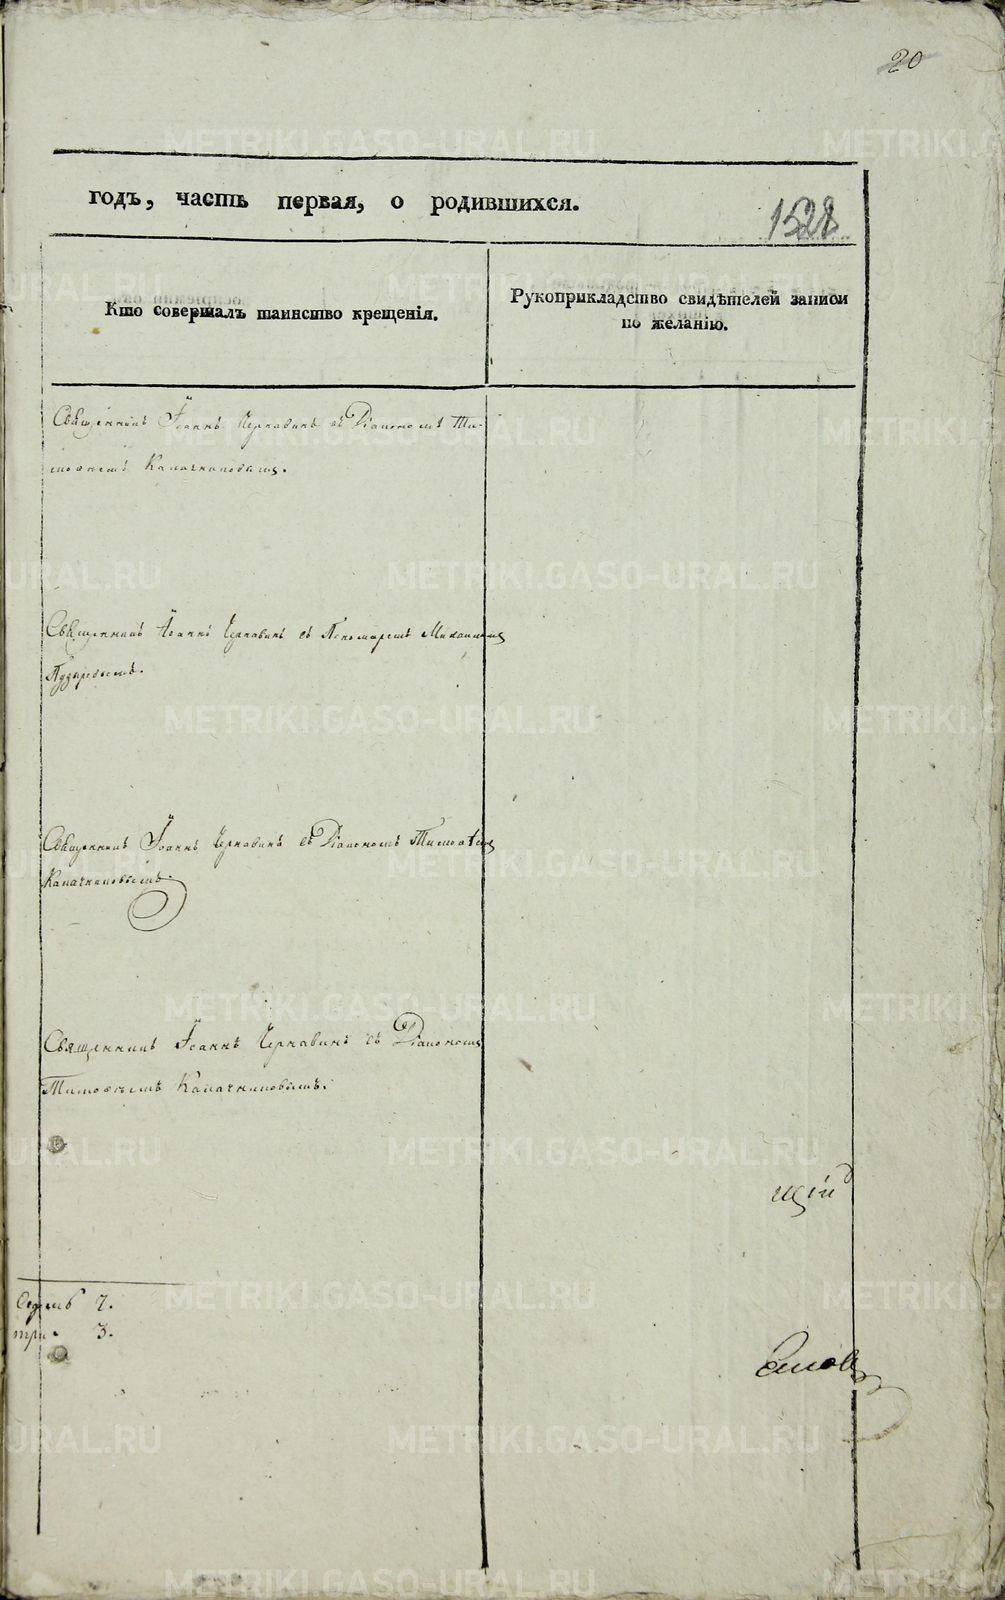 20
годъ, часть первая, о родившихся.
1528
Кто совершалъ таинство крещенія.
Рукоприкладство свидѣтелей записи
по желанію.
Священникъ Іоаннъ Чернавинъ съ Діакономъ Ти-
моѳеемъ Калачниковымъ.
Священникъ Іоаннъ Чернавинъ съ Пономаремъ Михаиломъ
Священникъ Іоаннъ Чернавинъ съ Діакономъ Тимоѳеемъ
Калачниковымъ.
Священникъ Іоаннъ Чернавинъ съ Діакономъ
Тимоѳеемъ Калачниковымъ.
щій
Седмь 7.
три. 3.
METRIKI.GASO-URAL.RU